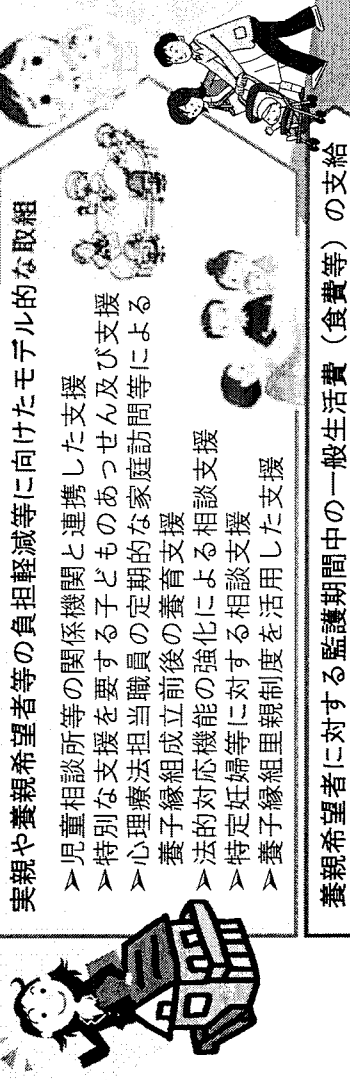 実親や養親希望者等の負担軽減等に向けたモデル的な取組
➢児童相談所等の関係機関と連携した支援
➢特別な支援を要する子どものあっせん及び支援
➢心理療法担当職員の定期的な家庭訪問等による
養子縁組成立前後の養育支援
➢法的対応機能の強化による相談支援
➢特定妊婦等に対する相談支援
➢養子縁組里親制度を活用した支援
養親希望者に対する監護期間中の一般生活費（食費等）の支給